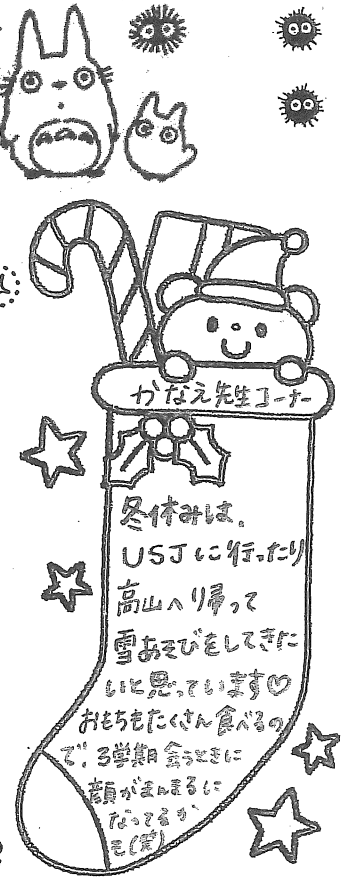 かなえ先生コーナー
冬休みは、
USJに行ったり
高山へ帰って
雪あそびをしてきた
いと思っています♡
おもちもたくさん食べるの
で、3学期会うときに
顔がまんまるに
なってるか
も(笑)